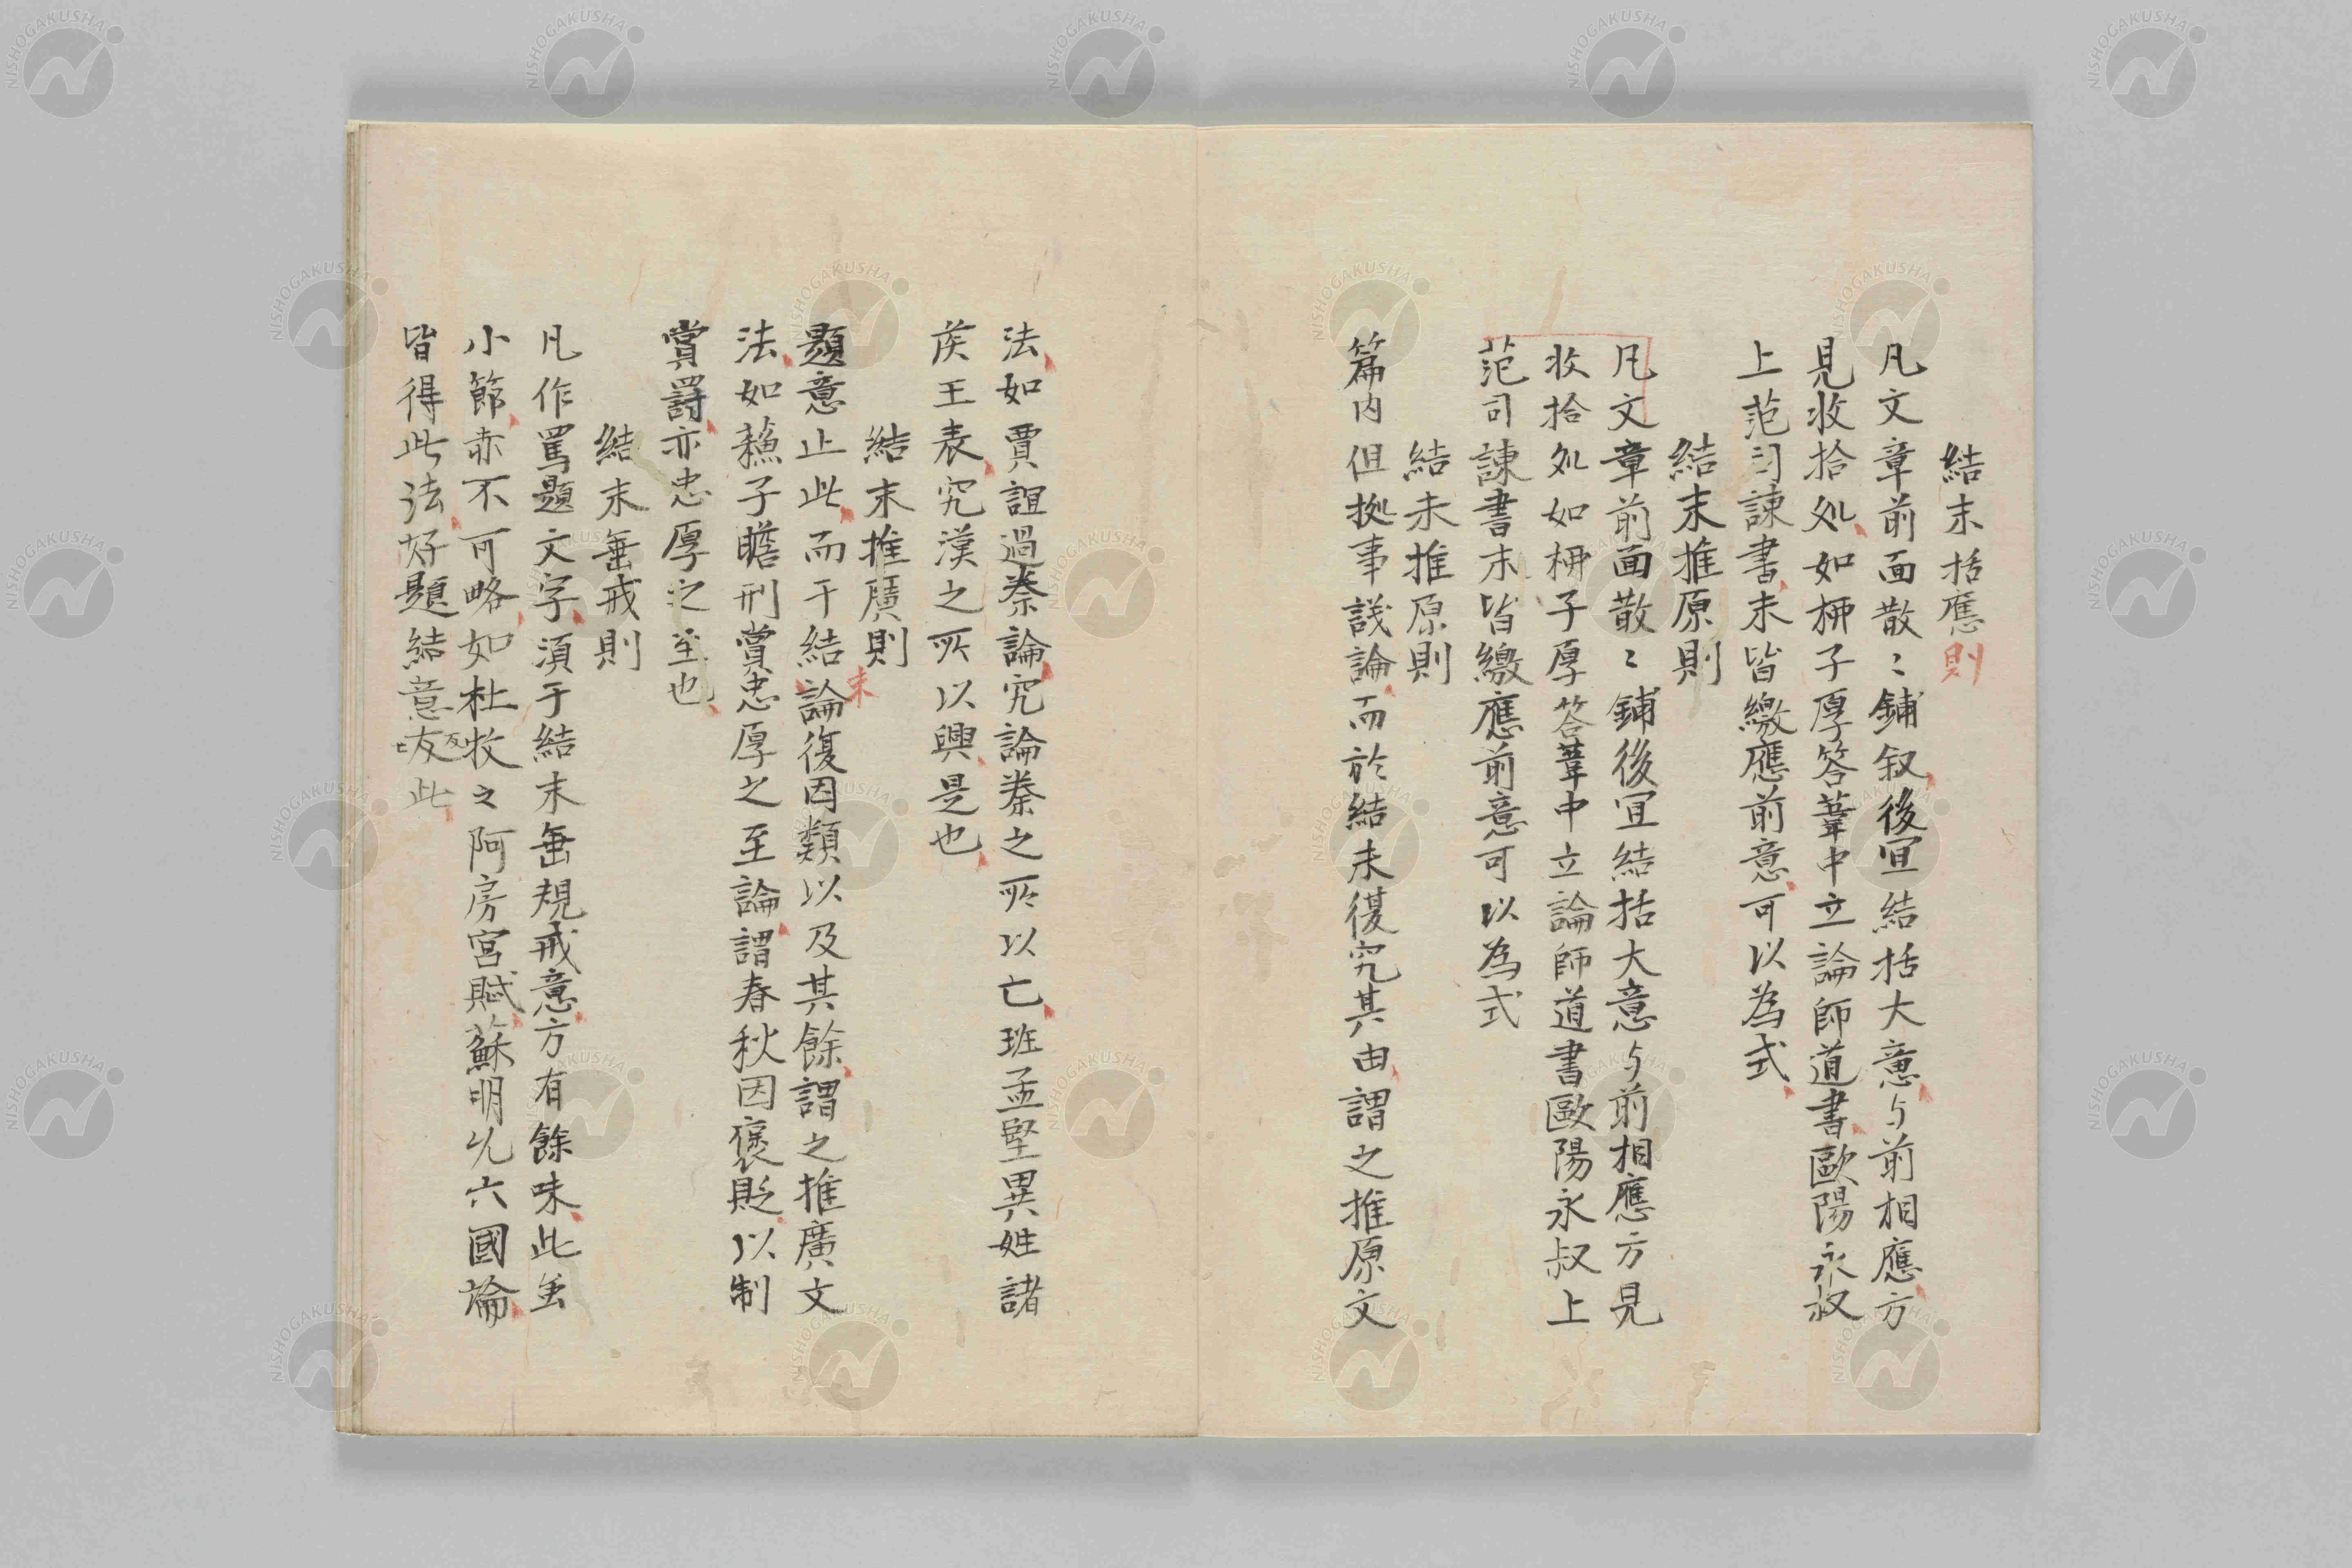 結末括應則
凡文章前面散〻鋪叙後宜結括大意与前相應方
見收拾処如栁子厚答韋中立論師道書歐陽永叔
上范司諫書末皆繳應前意可以為式
結末推原則
凡文章前面散〻鋪後宜結括大意与前相應方見
收拾処如栁子厚答韋中立論師道書歐陽永叔上
范司諫書末皆繳應前意可以為式
結末推原則
篇内但拠事議論而於結末復究其由謂之推原文
法如賈誼過秦論究論秦之所以亡班孟堅異姓諸
侯王表究漢之所以興是也
結末推廣則
題意止此而于結末論復因類以及其餘謂之推廣文
法如蘓子瞻刑賞忠厚之至論謂春秋因褒貶以制
賞罰亦忠厚之至也
結末垂戒則
凡作罵題文字須于結末垂規戒意方有餘味此虽
小節亦不可略如杜牧之阿房宮賦蘇明允六國論
皆得此法好題結意反此